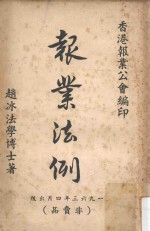 香港報業公會編印
報業法例
趙冰法學博士著
一九六三年四月出版
（非賣品）